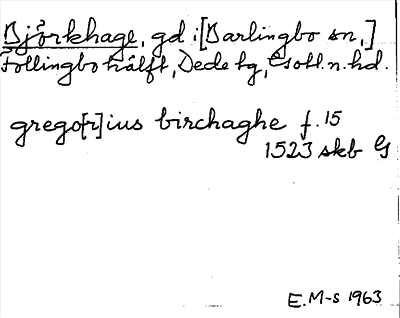 Björkhage, gd i [Barlingbo sn,]
Follingbo hälft, Dede tg, Gotl. n. hd.
grego[r]ius birchaghe f. 15
1523 skb G
E. M-s 1963